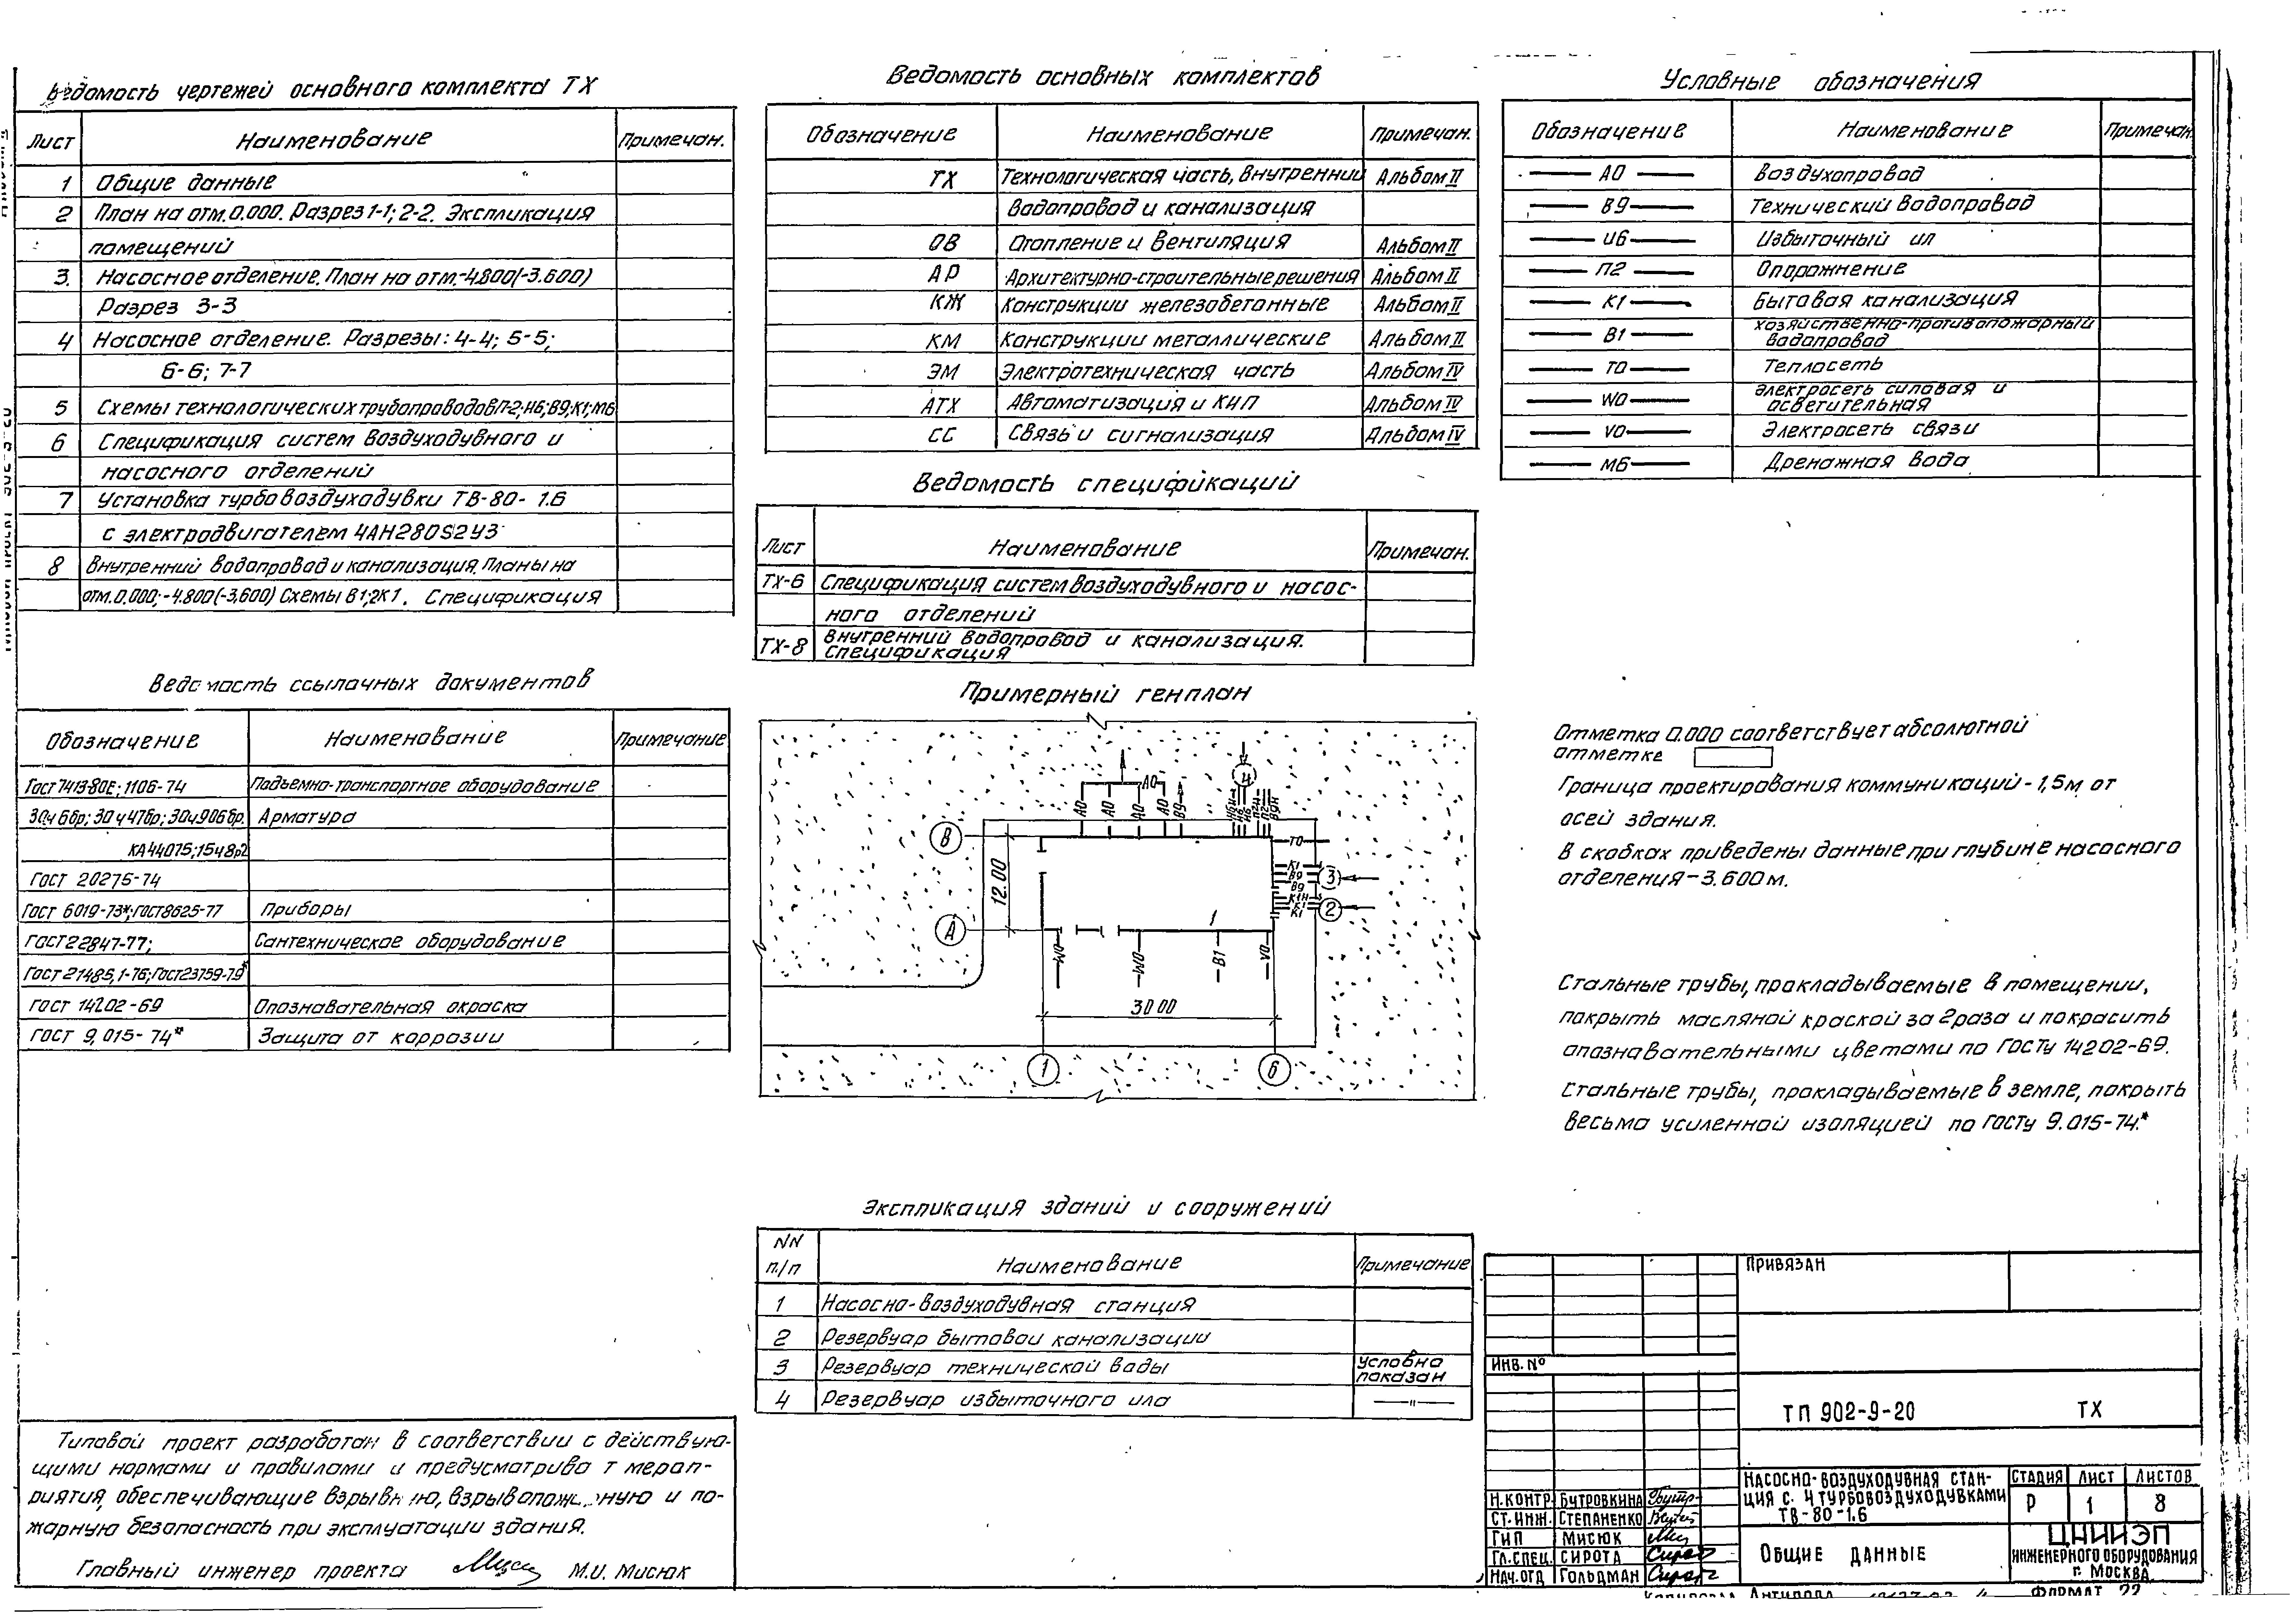 Ведомость чертежей основного комплекта ТХ
Лист Наименование Примечан.
1 Общие данные
2 План на отм.0.000. Разрез 1-1; 2-2. Экспликация
помещений
3. Насосное отделение. План на отм.-4.800(-3.600)
Разрез 3-3
4 Насосное отделение. Разрезы: 4-4; 5-5;
6-6; 7-7
5 Схемы технологических трубопроводов П-2; И6; В9; К1; М6
6 Спецификация систем воздуходувного и
насосного отделений
7 Установка турбовоздуходувки ТВ-80-1.6
с электродвигателем 4АН280S2У3
8 Внутренний водопровод и канализация. Планы на
отм.0.000;-4.800(-3.600) Схемы В1;2К1. Спецификация
Ведомость ссылочных документов
Обозначение Наименование Примечание
Гост 7413-80Е; 1106-74 Подъемно-транспортное оборудование
30ч6бр; 30ч47бр; 30ч906бр. Арматура
КА44075; 15ч8р2
ГОСТ 20275-74
Гост 6019-73*; ГОСТ8625-77 Приборы
Гост22847-77; Сантехническое оборудование
Гост21485,1-76; Гост23759-79*
ГОСТ 14202-69 Опознавательная окраска
ГОСТ 9.015-74* Защита от коррозии
Типовой проект разработан в соответствии с действую-
щими нормами и правилами и предусматрива т мероп-
риятия, обеспечивающие взрывную, взрывопожарную и по-
жарную безопасность при эксплуатации здания.
Главный инженер проекта М.И. Мисюк
Ведомость основных комплектов
Обозначение Наименование Примечан.
ТХ Технологическая часть, внутренний Альбом II
водопровод и канализация
ОВ Отопление и вентиляция Альбом II
АР Архитектурно-строительные решения Альбом II
КЖ Конструкции железобетонные Альбом II
КМ Конструкции металлические Альбом II
ЭМ Электротехническая часть Альбом IV
АТХ Автоматизация и КИП Альбом IV
СС Связь и сигнализация Альбом IV
Ведомость спецификаций
Лист Наименование Примечан.
ТХ-6 Спецификация систем воздуходувного и насос-
ного отделений
ТХ-8 Внутренний водопровод и канализация.
Спецификация
Примерный генплан
А0
А0 А0 А0 А0 В9
И6 И6 П2Н П2 В9Н
4
В
Т0
12.00
К1
В9
В9
3
К1Н
К1
К1
2
А
1
W0 W0 В1 V0
30 00
1 6
Экспликация зданий и сооружений
NN
п./п Наименование Примечание
1 Насосно-воздуходувная станция
2 Резервуар бытовой канализации
3 Резервуар технической воды Условно
показан
4 Резервуар избыточного ила —"—
Условные обозначения
Обозначение Наименование Примечан.
А0 Воздухопровод
В9 Технический водопровод
И6 Избыточный ил
П2 Опорожнение
К1 Бытовая канализация
В1 Хозяйственно-противопожарный
водопровод
Т0 Теплосеть
W0 Электросеть силовая и
осветительная
V0 Электросеть связи
М6 Дренажная вода
Отметка 0.000 соответствует абсолютной
отметке
Граница проектирования коммуникаций - 1,5м от
осей здания.
В скобках приведены данные при глубине насосного
отделения-3.600м.
Стальные трубы, прокладываемые в помещении,
покрыть масляной краской за 2 раза и покрасить
опознавательными цветами по ГОСТу 14202-69.
Стальные трубы, прокладываемые в земле, покрыть
весьма усиленной изоляцией по Госту 9.015-74.*
ПРИВЯЗАН
ИНВ. №
ТП 902-9-20 ТХ
НАСОСНО-ВОЗДУХОДУВНАЯ СТАН-
ЦИЯ С 4 ТУРБОВОЗДУХОДУВКАМИ
ТВ-80-1.6
СТАДИЯ ЛИСТ ЛИСТОВ
Р 1 8
Н.КОНТР. БУТРОВКИНА
СТ.ИНЖ. СТЕПАНЕНКО
ГИП МИСЮК
ГЛ.СПЕЦ. СИРОТА
НАЧ.ОТД ГОЛЬДМАН
ОБЩИЕ ДАННЫЕ
ЦНИИЭП
ИНЖЕНЕРНОГО ОБОРУДОВАНИЯ
Г. МОСКВА
ФОРМАТ 22